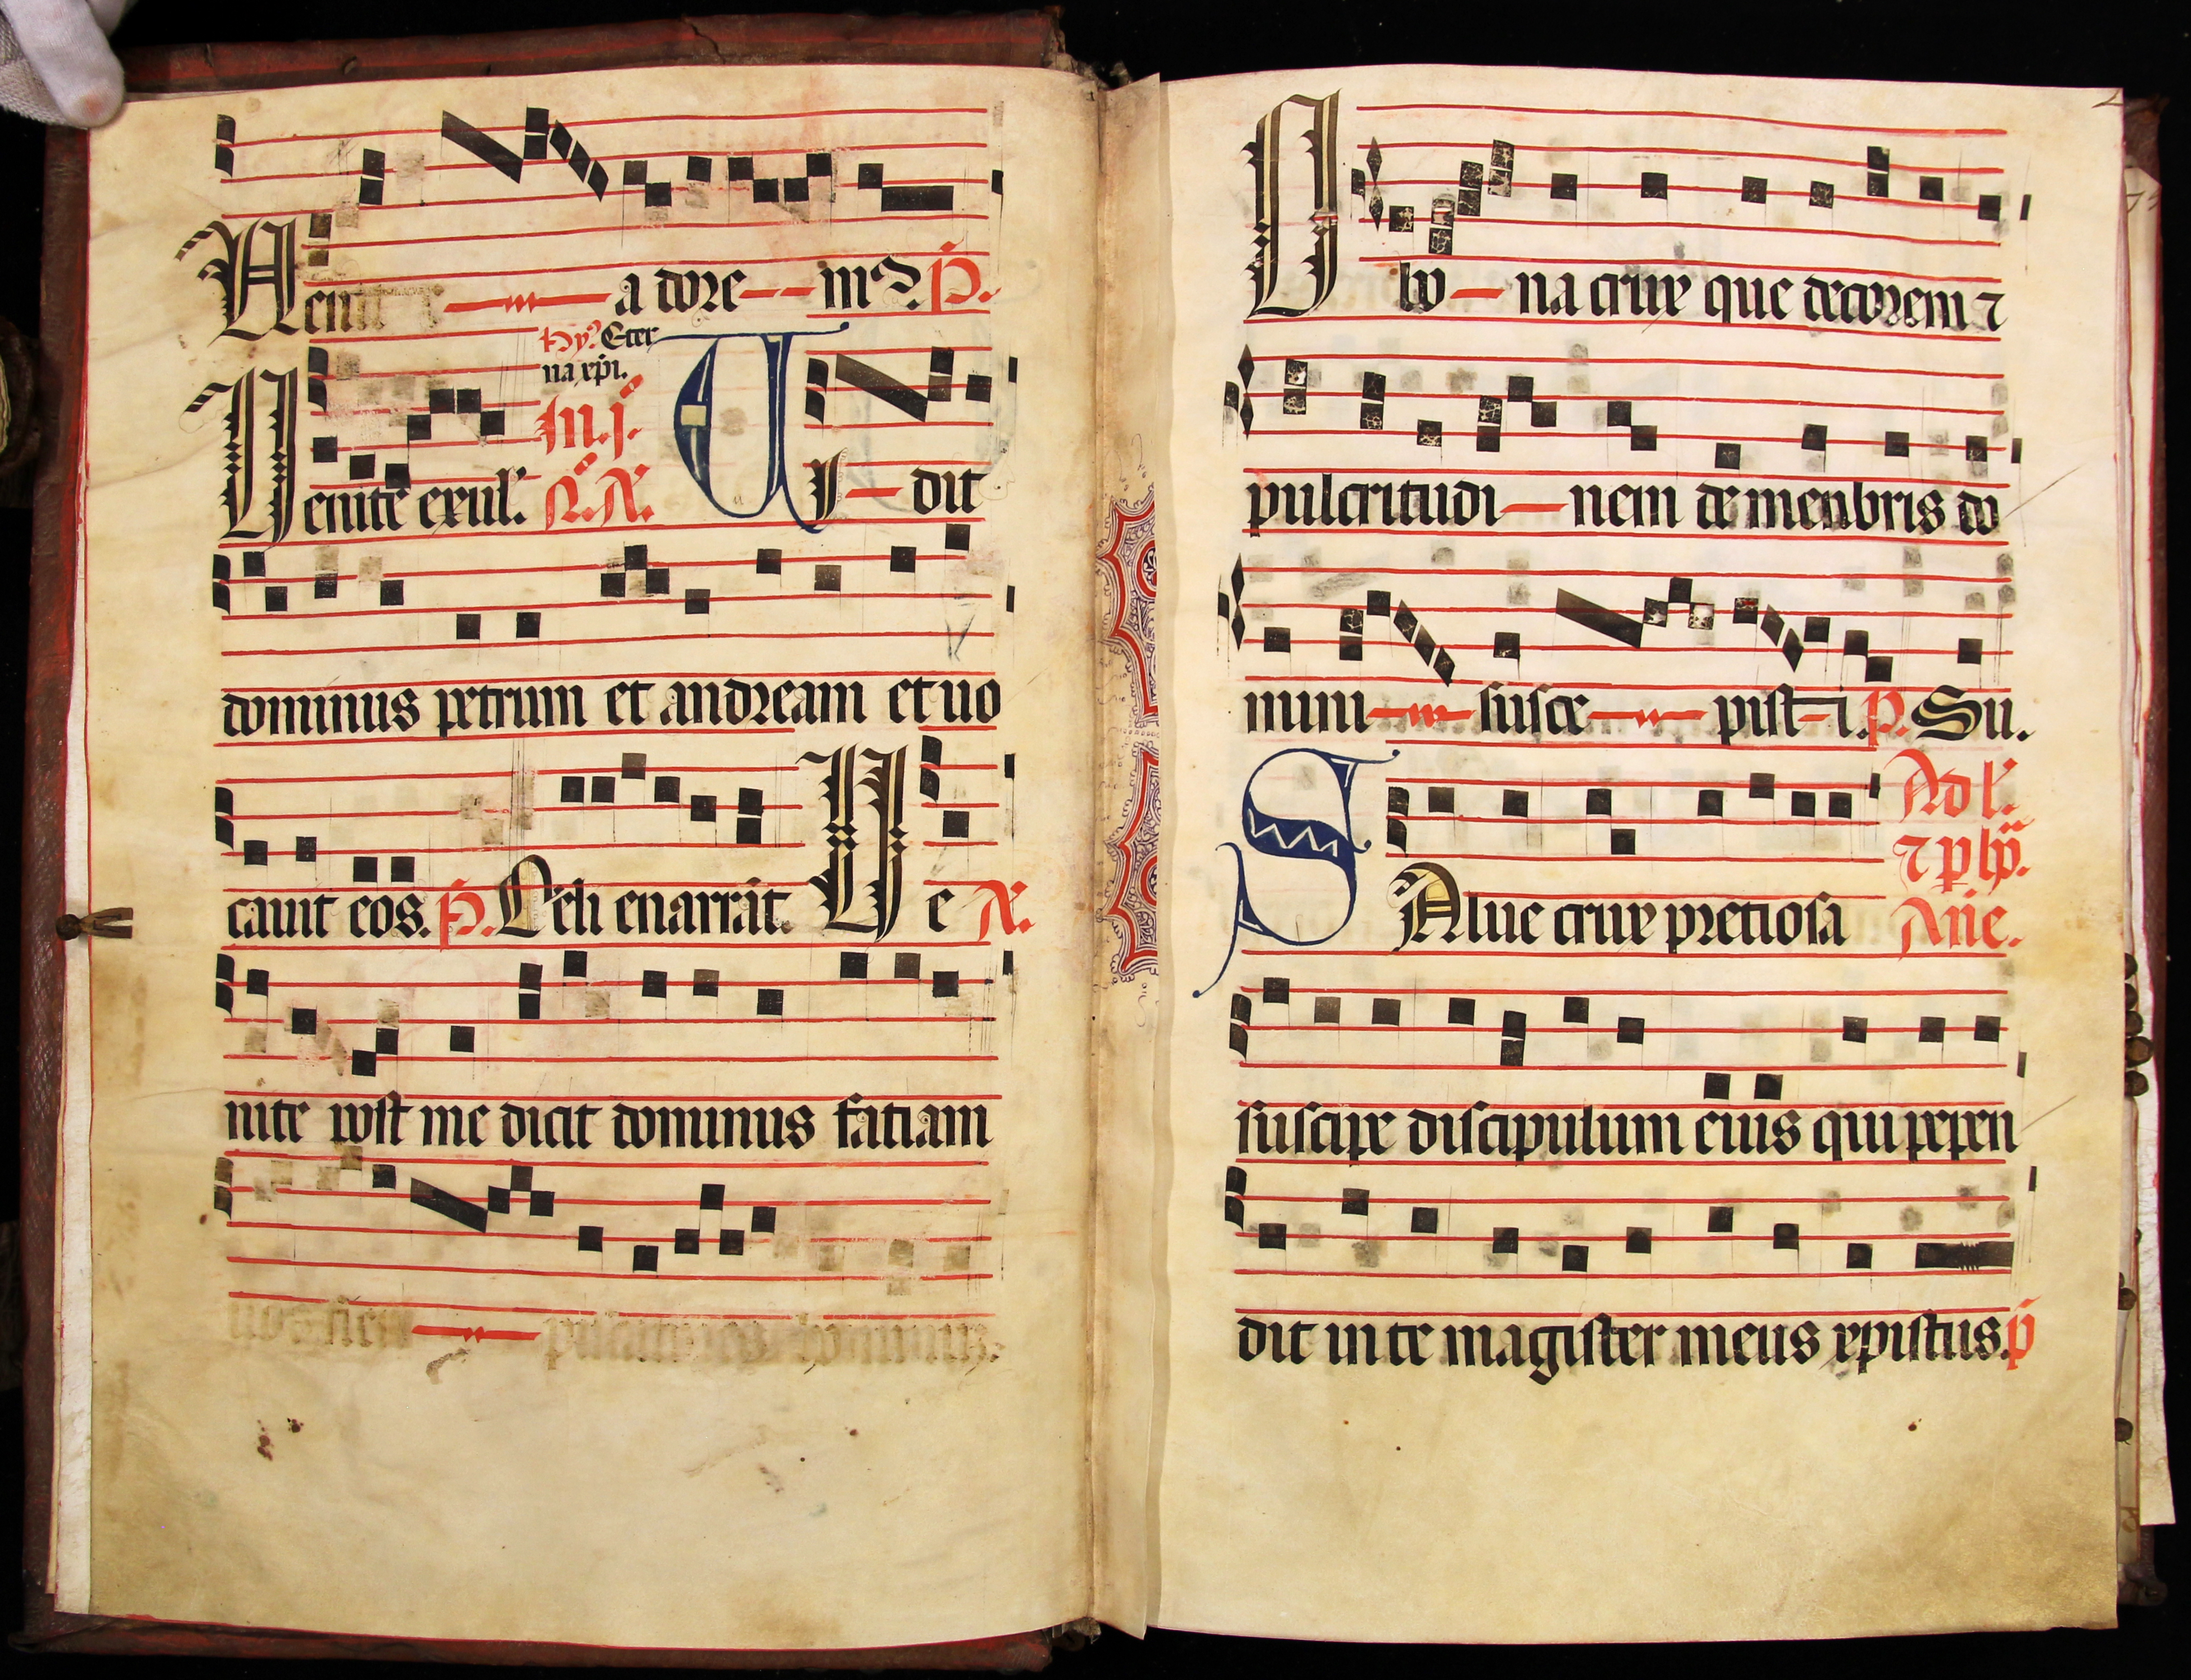 Uenit a dore - - mꝰ. P̄.
hyꝰ. Eter
na xp̄i.
Uenite exul̄. In. j.
UI - dit
dominus petrum et andream et uo
cauit eos. P̄. Celi enarrāt. Ue
nite post me dicit dominus fatiam
uos fieri piscatores hominum.
O bo - na crux que decorem ⁊
pulcritudi - nem de menbris do
mini susce - pist - i. P̄. Su.
Ad l̄.
SAlue crux pretiosa
suscipe discipulum eius qui pepen
dit in te magister meus xp̄istus. p̄